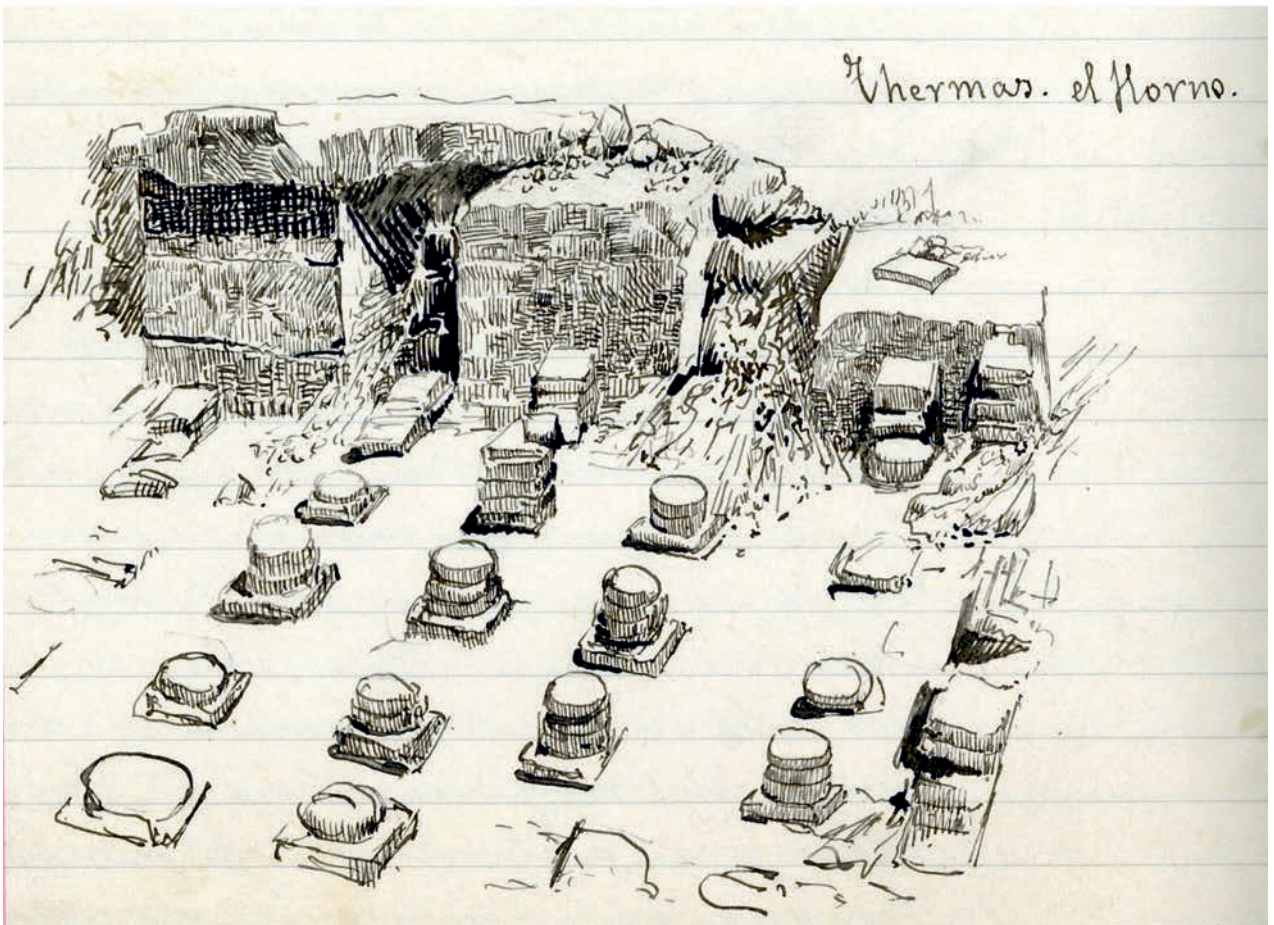 Thermas. el Horno.